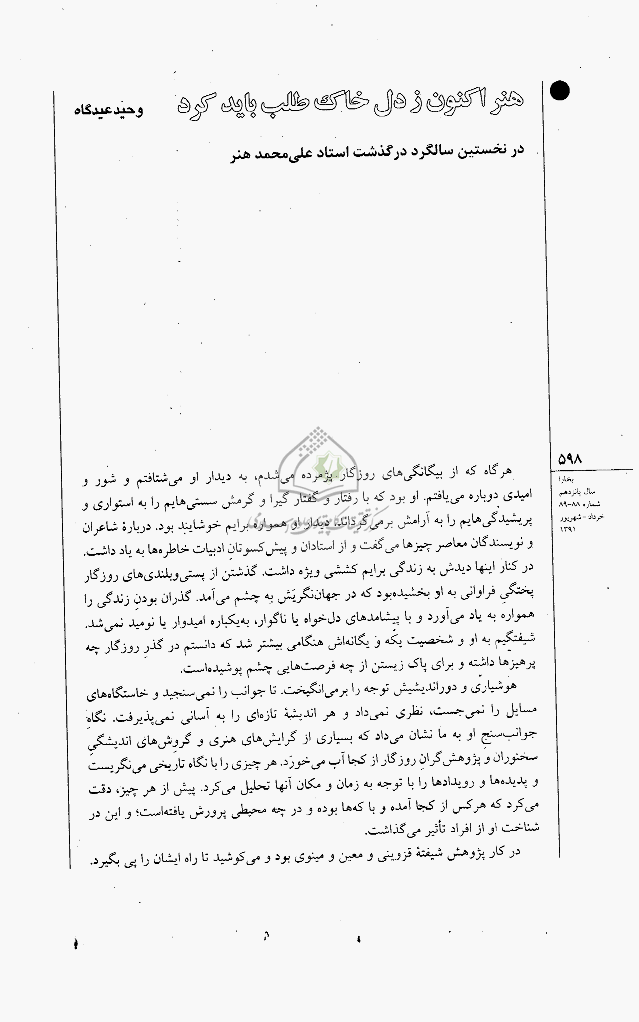 هنر اکنون ز دل خاک طلب باید کرد
وحید عیدگاه
در نخستین سالگرد درگذشت استاد علی‌محمد هنر
۵۹۸
بخارا
سال پانزدهم
شماره ۸۸-۸۹
خرداد - شهریور
۱۳۹۱
هرگاه که از بیگانگی‌های روزگار پژمرده می‌شدم، به دیدار او می‌شتافتم و شور و
امیدی دوباره می‌یافتم. او بود که با رفتار و گفتار گیرا و گرمش سستی‌هایم را به استواری و
پریشیدگی‌هایم را به آرامش برمی‌گرداند. دیدار او همواره برایم خوشایند بود. دربارهٔ شاعران
و نویسندگان معاصر چیزها می‌گفت و از استادان و پیش‌کسوتانِ ادبیات خاطره‌ها به یاد داشت.
در کنار اینها دیدش به زندگی برایم کششی ویژه داشت. گذشتن از پستی‌وبلندی‌های روزگار
پختگیِ فراوانی به او بخشیده‌بود که در جهان‌نگریَش به چشم می‌آمد. گذران بودنِ زندگی را
همواره به یاد می‌آورد و با پیشامدهای دل‌خواه یا ناگوار، به‌یکباره امیدوار یا نومید نمی‌شد.
شیفتگیم به او و شخصیت یکّه و یگانه‌اش هنگامی بیشتر شد که دانستم در گذرِ روزگار چه
پرهیزها داشته و برای پاک زیستن از چه فرصت‌هایی چشم پوشیده‌است.
هوشیاری و دوراندیشیش توجه را برمی‌انگیخت. تا جوانب را نمی‌سنجید و خاستگاه‌های
مسایل را نمی‌جست، نظری نمی‌داد و هر اندیشهٔ تازه‌ای را به آسانی نمی‌پذیرفت. نگاهِ
جوانب‌سنجِ او به ما نشان می‌داد که بسیاری از گرایش‌های هنری و گروش‌های اندیشگیِ
سخنوران و پژوهش‌گرانِ روزگار از کجا آب می‌خورَد. هر چیزی را با نگاه تاریخی می‌نگریست
و پدیده‌ها و رویدادها را با توجه به زمان و مکان آنها تحلیل می‌کرد. پیش از هر چیز، دقت
می‌کرد که هرکس از کجا آمده و با که‌ها بوده و در چه محیطی پرورش یافته‌است؛ و این در
شناخت او از افراد تأثیر می‌گذاشت.
در کار پژوهش شیفتهٔ قزوینی و معین و مینوی بود و می‌کوشید تا راه ایشان را پی بگیرد.